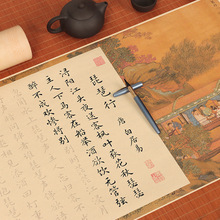 琵琶行
唐 白居易
浔阳江头夜送客枫叶荻花秋瑟瑟
主人下马客在船举酒欲饮无管弦
醉不成欢惨将别